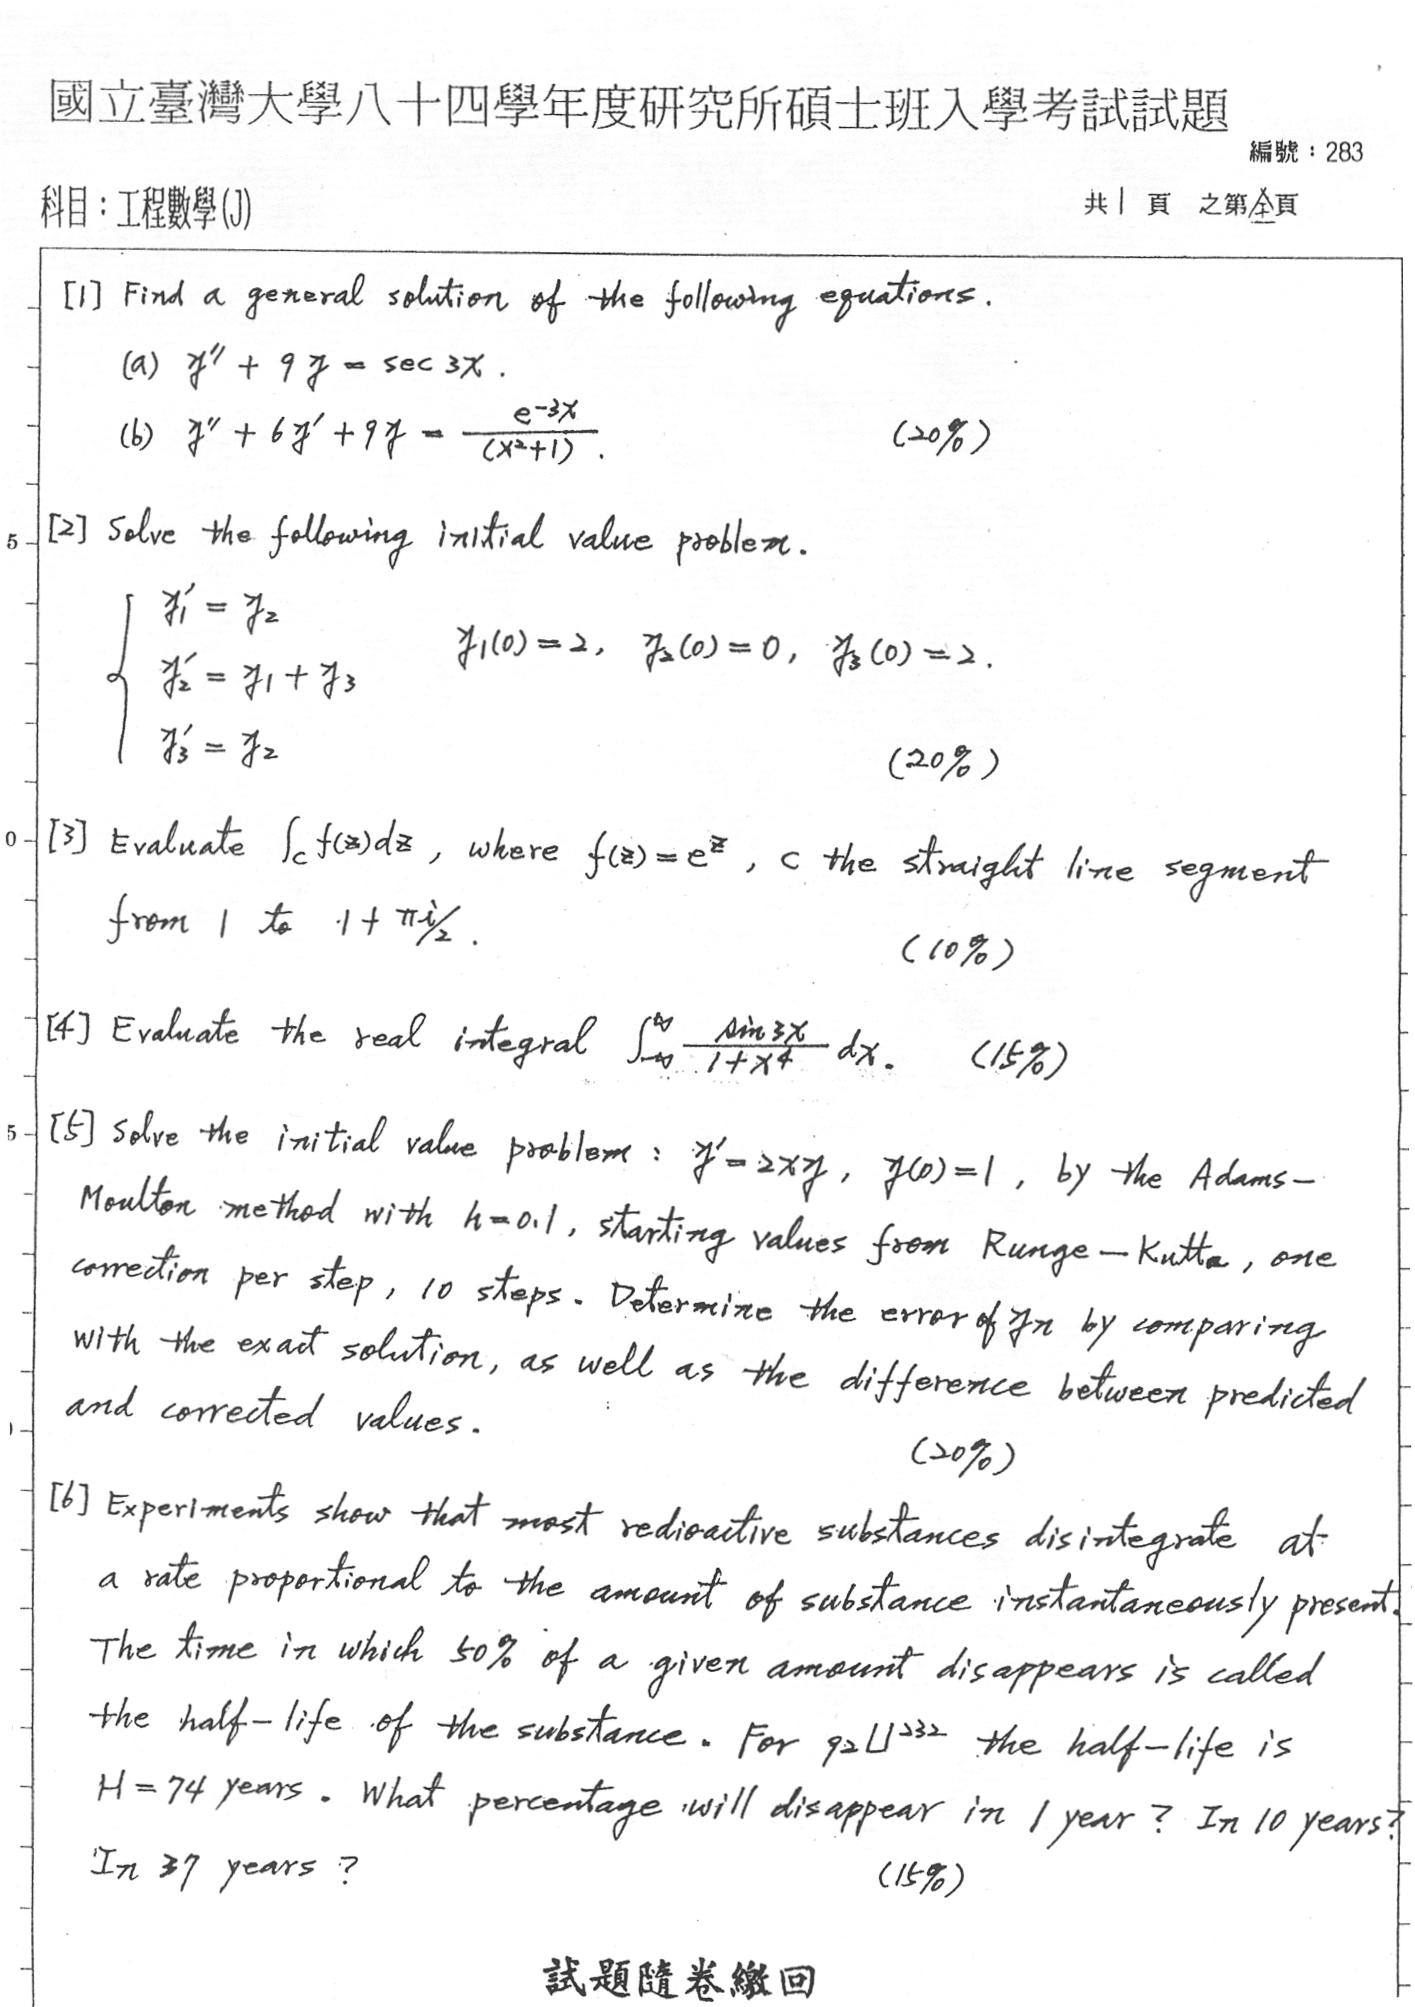 國立臺灣大學八十四學年度研究所碩士班入學考試試題
編號：283
科目：工程數學(J)
共1頁 之第全頁
[1] Find a general solution of the following equations.
(a) y'' + 9y = sec 3x.
(b) y'' + 6y' + 9y = e^{-3x}/(x²+1). (20%)
5
[2] Solve the following initial value problem.
y₁' = y₂
y₁(0)=2, y₂(0)=0, y₃(0)=2.
y₂' = y₁ + y₃
y₃' = y₂
(20%)
0
[3] Evaluate ∫_C f(z)dz, where f(z)=e^z, C the straight line segment
from 1 to 1+πi/2.
(10%)
[4] Evaluate the real integral ∫_{-∞}^{∞} sin 3x/(1+x⁴) dx. (15%)
5
[5] Solve the initial value problem: y'=2xy, y(0)=1, by the Adams-
Moulton method with h=0.1, starting values from Runge-Kutta, one
correction per step, 10 steps. Determine the error of yn by comparing
with the exact solution, as well as the difference between predicted
and corrected values.
(20%)
[6] Experiments show that most redioactive substances disintegrate at
a rate proportional to the amount of substance instantaneously present.
The time in which 50% of a given amount disappears is called
the half-life of the substance. For ₉₂U²³² the half-life is
H=74 years. What percentage will disappear in 1 year? In 10 years?
In 37 years?
(15%)
試題隨卷繳回